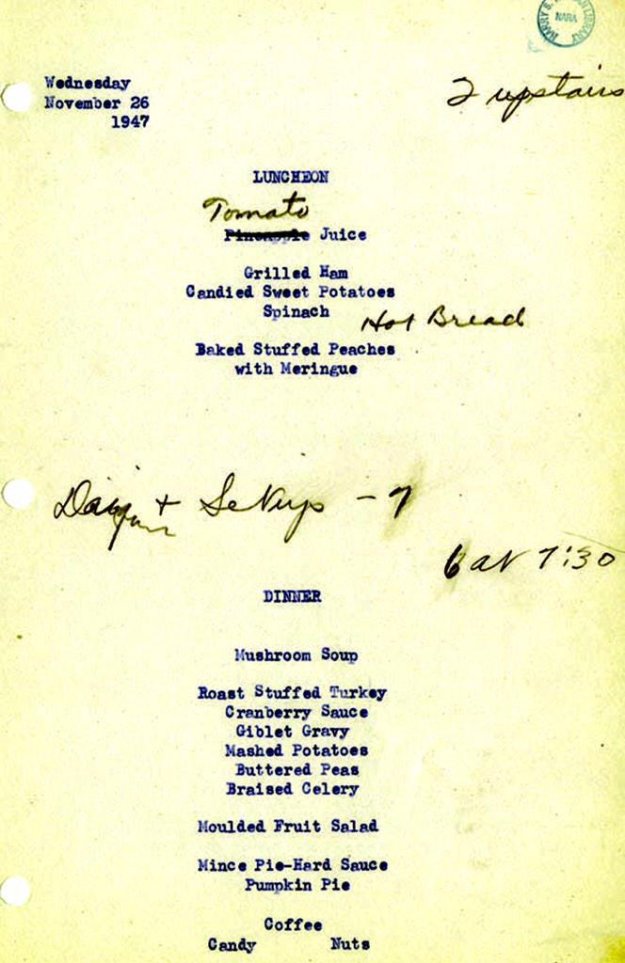 NARA
Wednesday
November 26
1947
2 upstairs
LUNCHEON
Tomato
Pineapple Juice
Grilled Ham
Candied Sweet Potatoes
Spinach
Hot Bread
Baked Stuffed Peaches
with Meringue
+ Set Ups - 7
6 at 7:30
DINNER
Mushroom Soup
Roast Stuffed Turkey
Cranberry Sauce
Giblet Gravy
Mashed Potatoes
Buttered Peas
Braised Celery
Moulded Fruit Salad
Mince Pie-Hard Sauce
Pumpkin Pie
Coffee
Candy Nuts